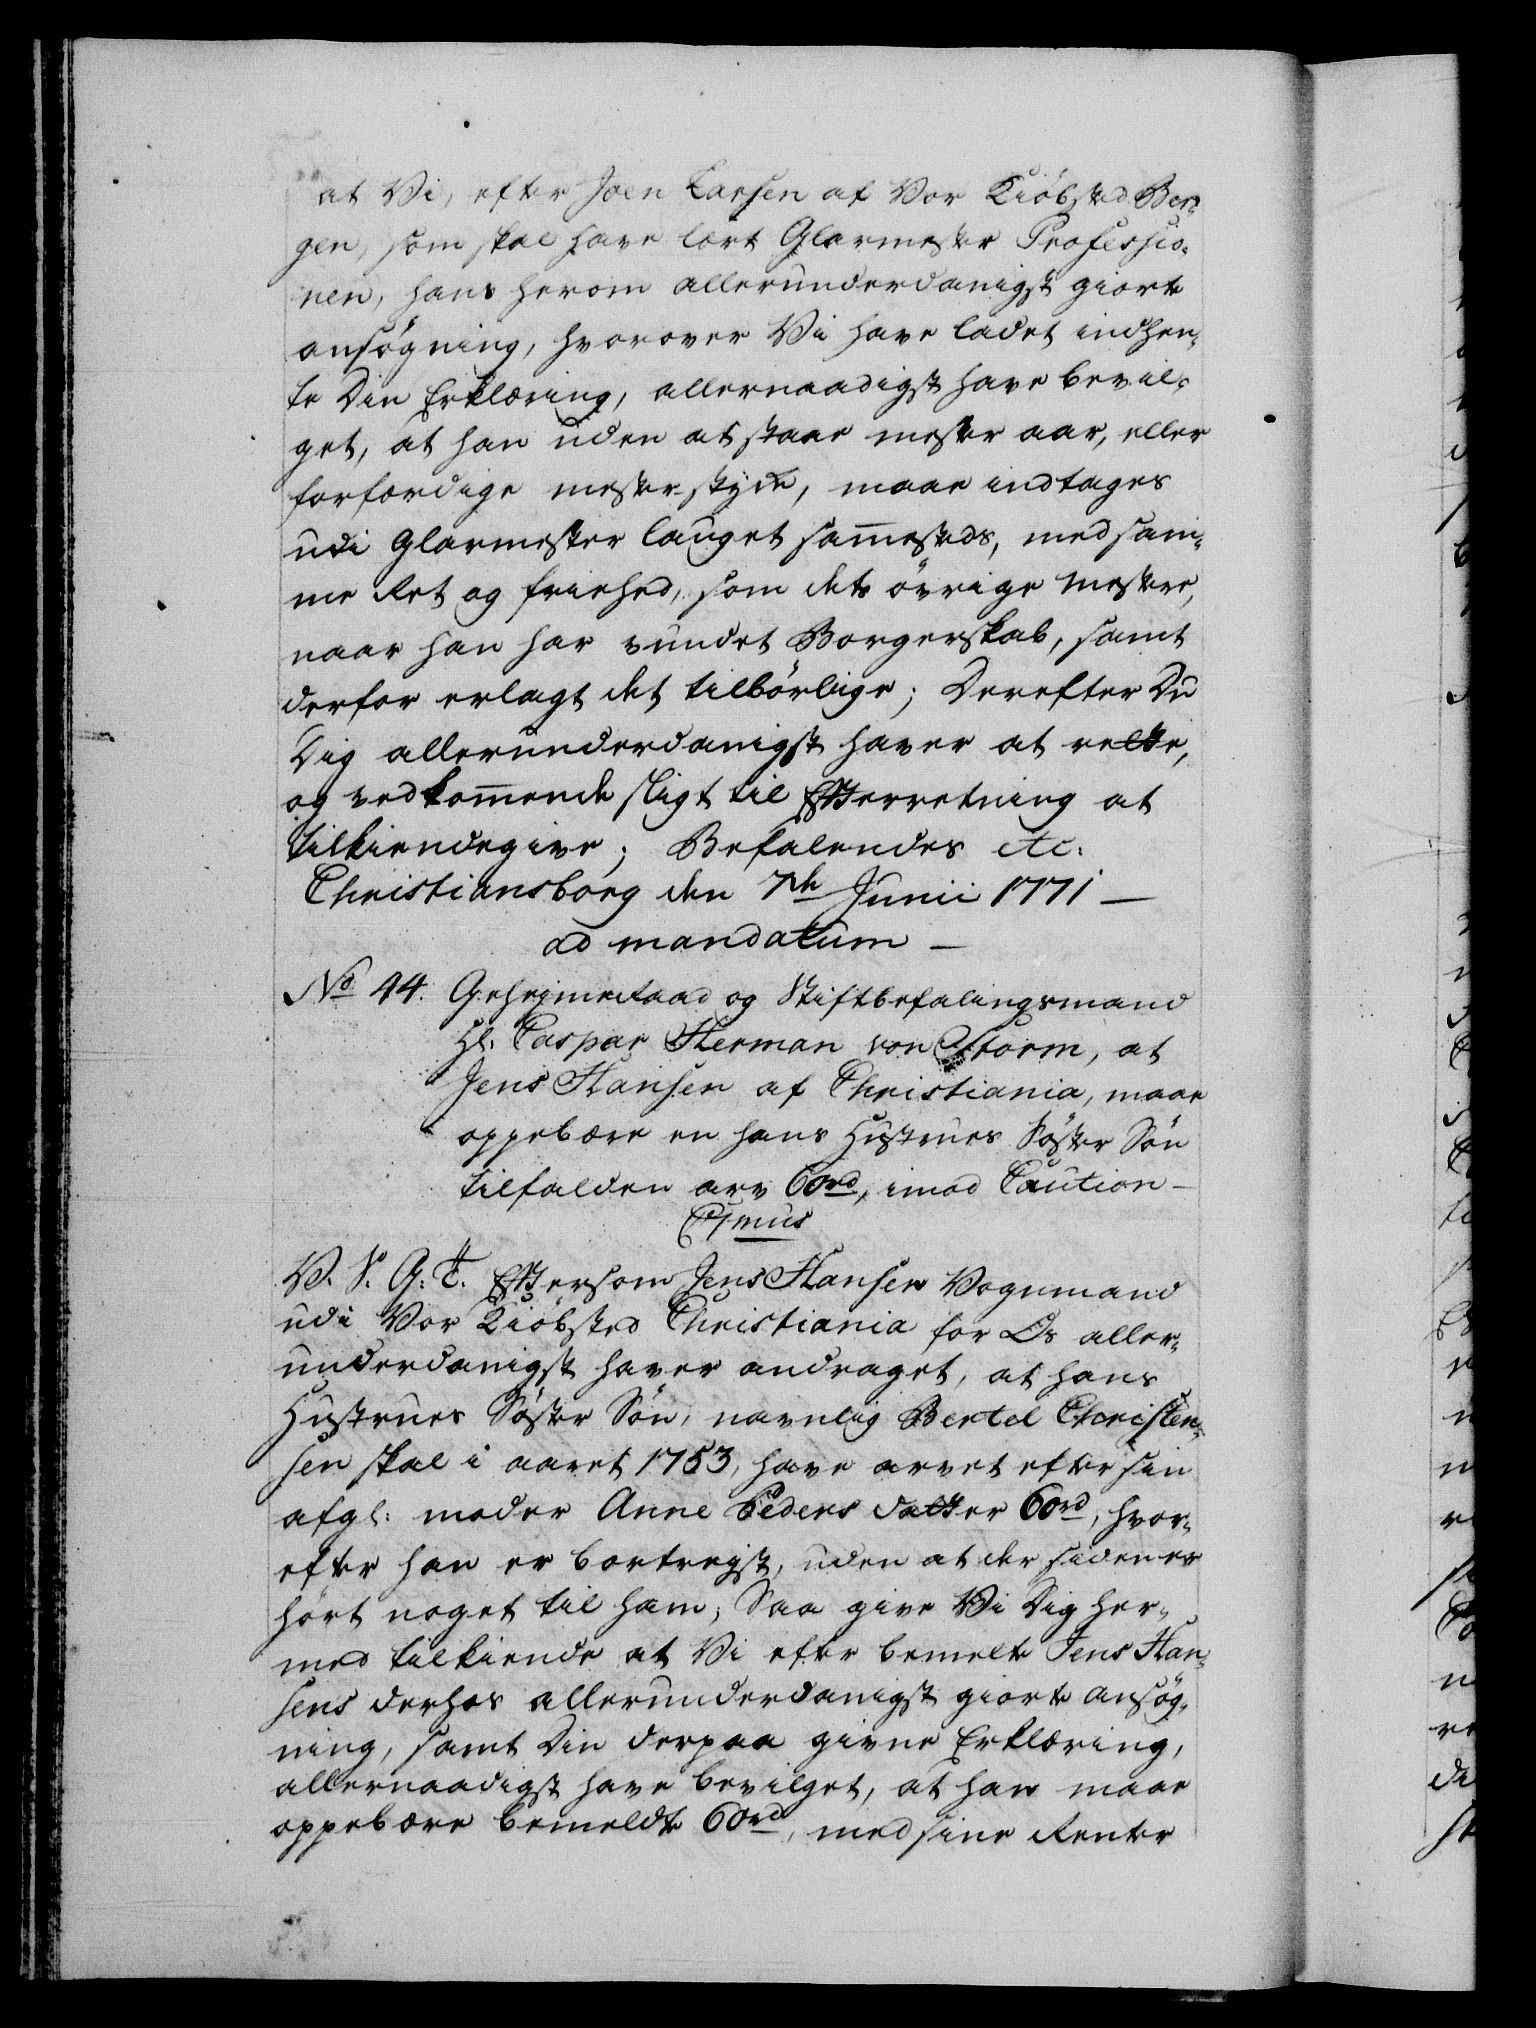 at Vi, efter Joen Larsen af Vor Kiöbsted Ber-
gen, som skal have lært Glarmester Professio-
nen, hans herom allerunderdanigst giorte
ansögning, hvorover Vi have ladet indhen-
te Din Erklæring, allernaadigst have bevil-
get, at han uden at staae mester aar, eller
forfærdige mester-stykke, maae indtages
udi Glarmester lauget sam̄esteds, med sam-
me Ret og friehed, som dets övrige Mestere,
naar han har vundet Borgerskab, samt
derfor erlagt det tilbörlige; Derefter Du
Dig allerunderdanigst haver at rette,
og vedkom̄ende sligt til Efterretning at
tilkiendegive; Befalendes etc:
Christiansborg den 7de Junii 1771 —
ad mandatum —
No 44. Geheimeraad og Stiftbefalingsmand
Hl. Caspar Herman von Storm, at
Jens Hansen af Christiania, maae
oppebære en hans Hustrues Söster Sön
tilfalden arv 60rd, imod Caution —
C7mus
V. S. G. T. Eftersom Jens Hansen Vognmand
udi Vor Kiöbsted Christiania for Os aller-
underdanigst haver andraget, at hans
Hustrues Söster Sön, navnlig Bertel Christen-
sen skal i aaret 1753, have arvet efter sin
afgl: moder Anne Peders datter 60rd, hvor-
efter han er bortreist, uden at der siden er
hört noget til ham; Saa give Vi Dig her-
med tilkiende at Vi efter bemelte Jens Han-
sens derhos allerunderdanigst giorte ansög-
ning, samt Din derpaa givne Erklæring,
allernaadigst have bevilget, at han maae
oppebære bemeldte 60rd, med sine Renter